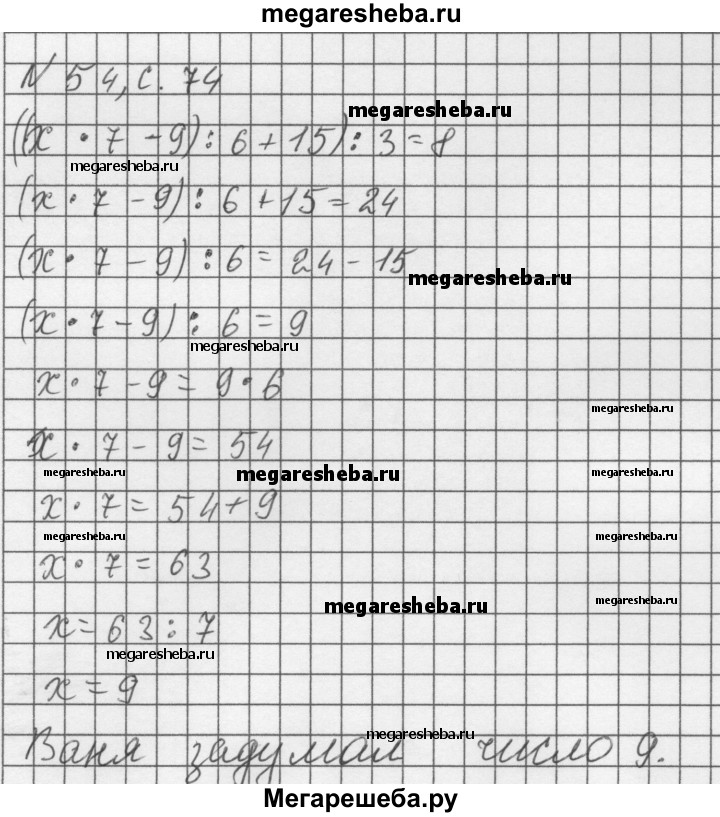 megaresheba.ru
N 54, с. 74
megaresheba.ru
((x · 7 - 9) : 6 + 15) : 3 = 8
megaresheba.ru
(x · 7 - 9) : 6 + 15 = 24
(x · 7 - 9) : 6 = 24 - 15
megaresheba.ru
(x · 7 - 9) : 6 = 9
megaresheba.ru
x · 7 - 9 = 9 · 6
megaresheba.ru
x · 7 - 9 = 54
megaresheba.ru megaresheba.ru megaresheba.ru
x · 7 = 54 + 9
megaresheba.ru megaresheba.ru
x · 7 = 63
megaresheba.ru megaresheba.ru
x = 63 : 7
megaresheba.ru
x = 9
megaresheba.ru
Ваня задумал число 9.
Мегарешеба.ру